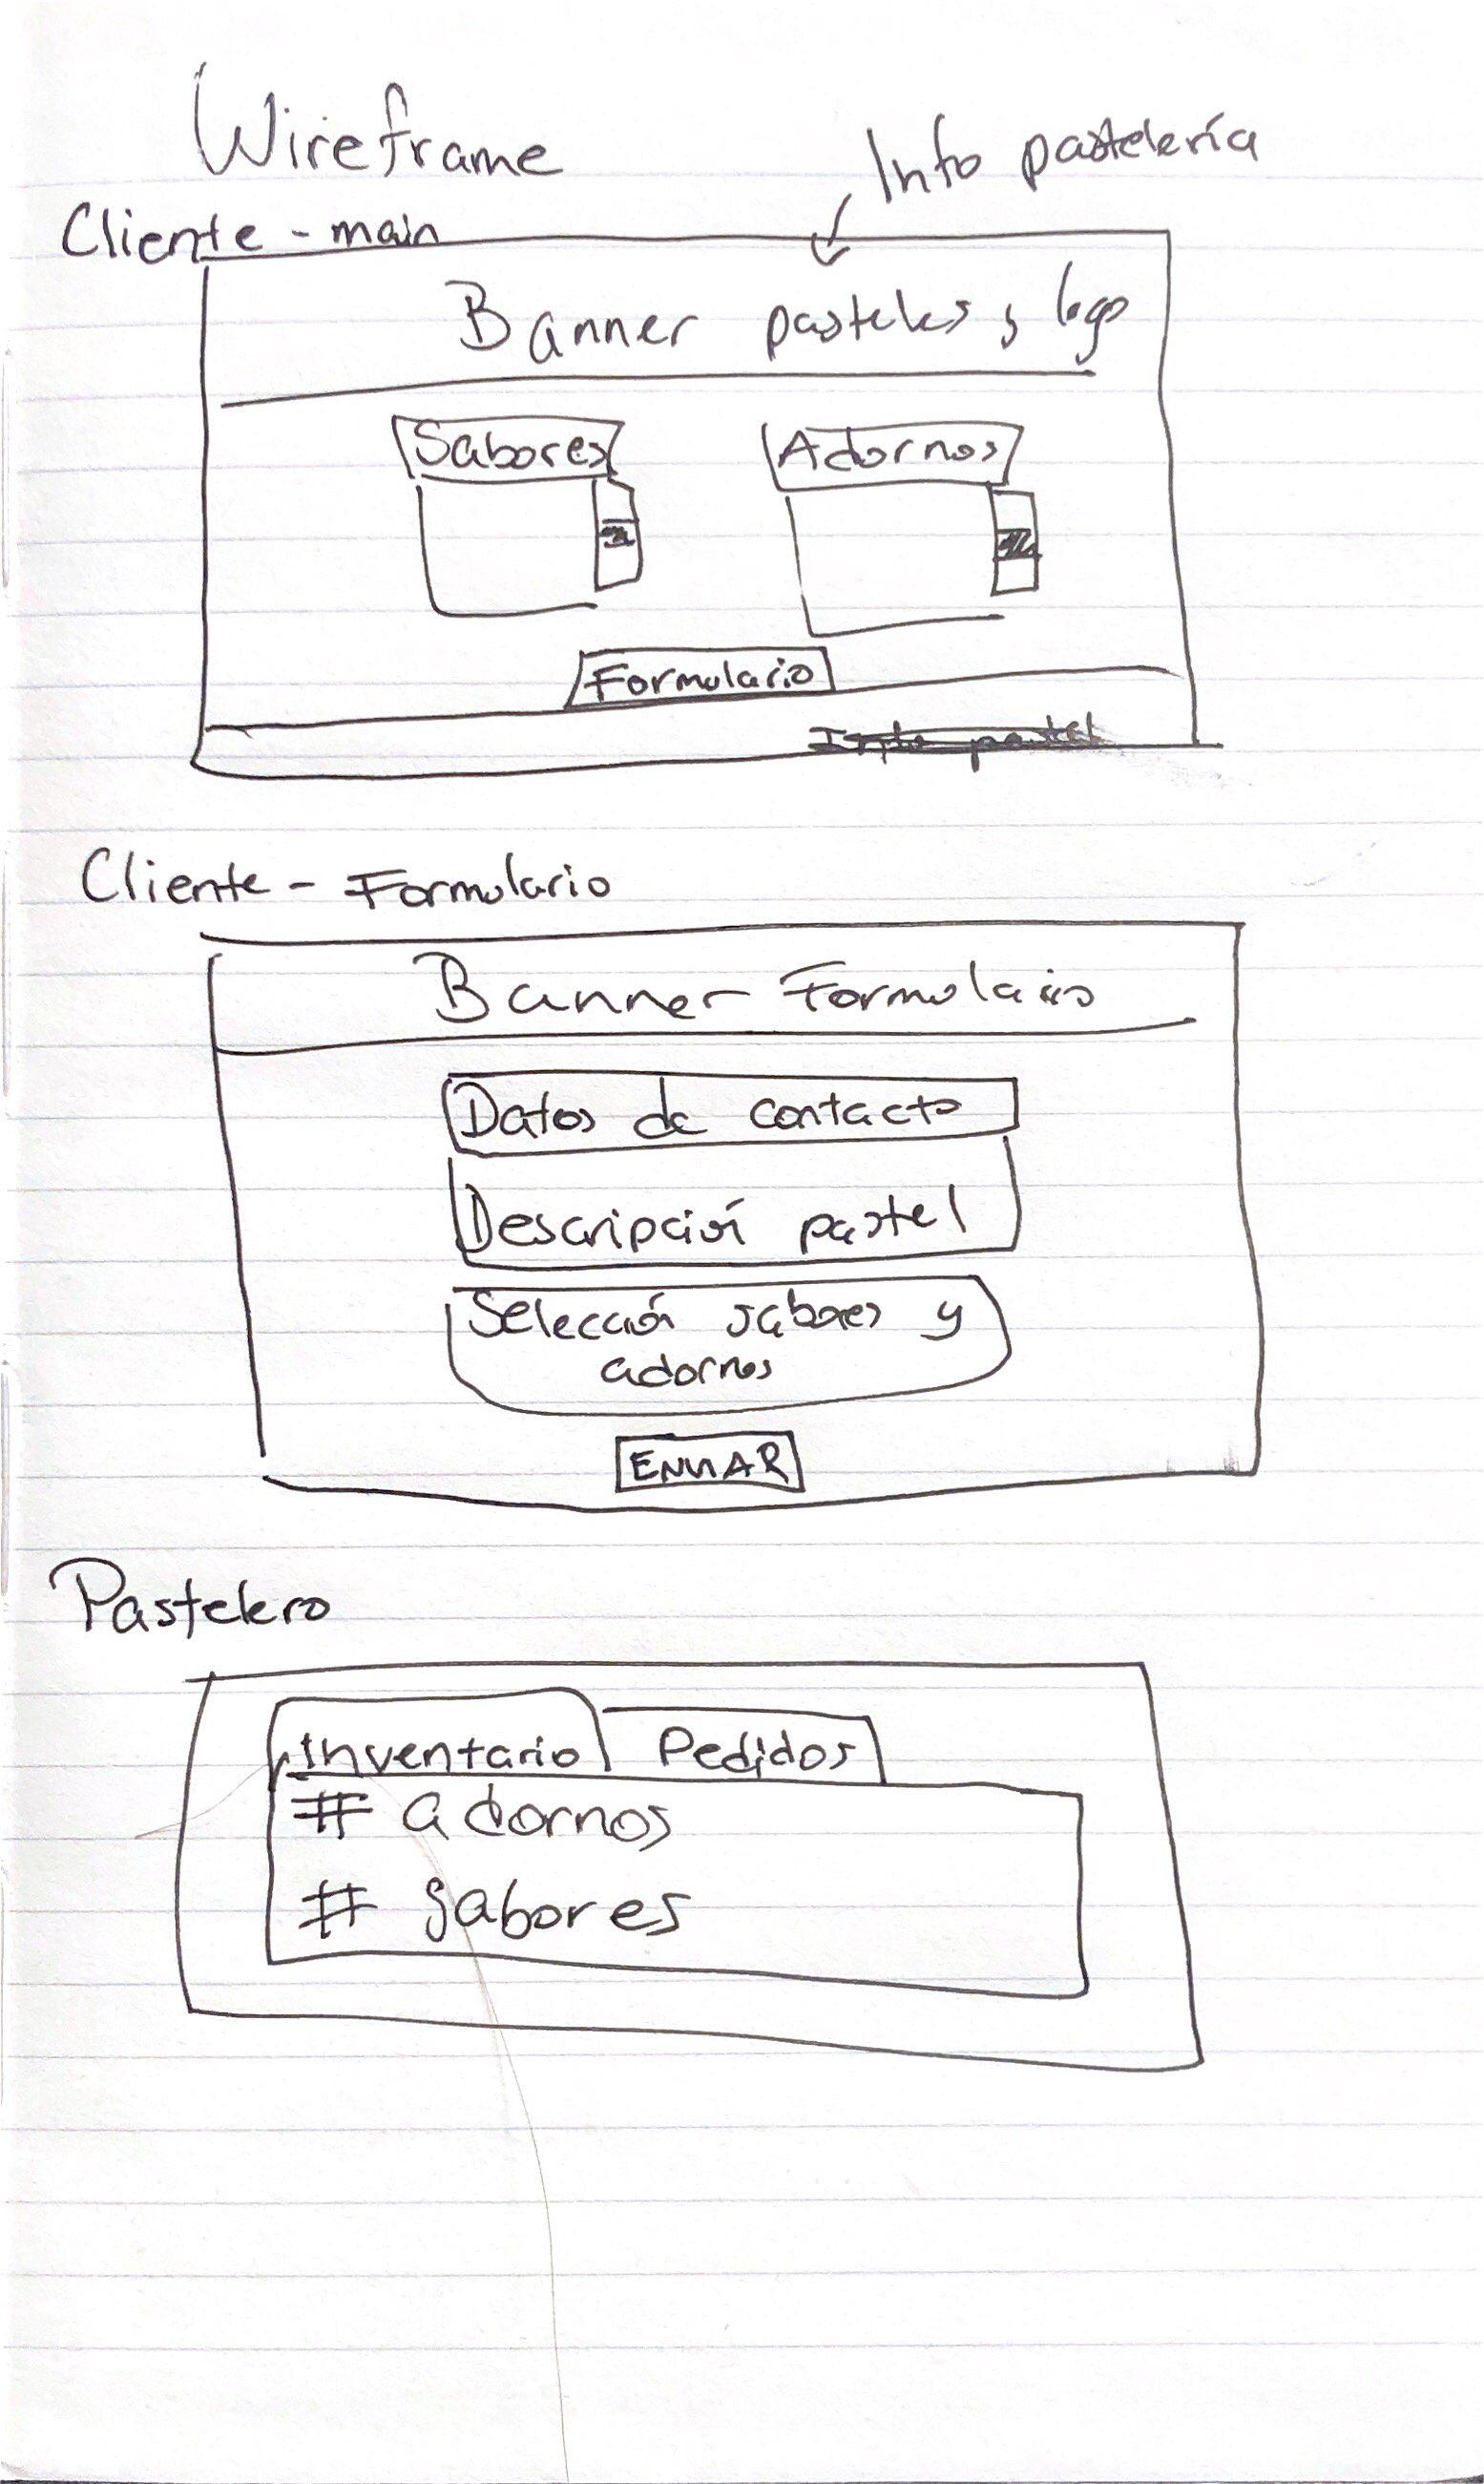 Wireframe
Info pastelería
Cliente - main
Banner pasteles y logo
Sabores
Adornos
Formulario
Info pastel
Cliente - Formulario
Banner Formulario
Datos de contacto
Descripción pastel
Selección sabores y
adornos
ENVIAR
Pastelero
Inventario Pedidos
# adornos
# sabores